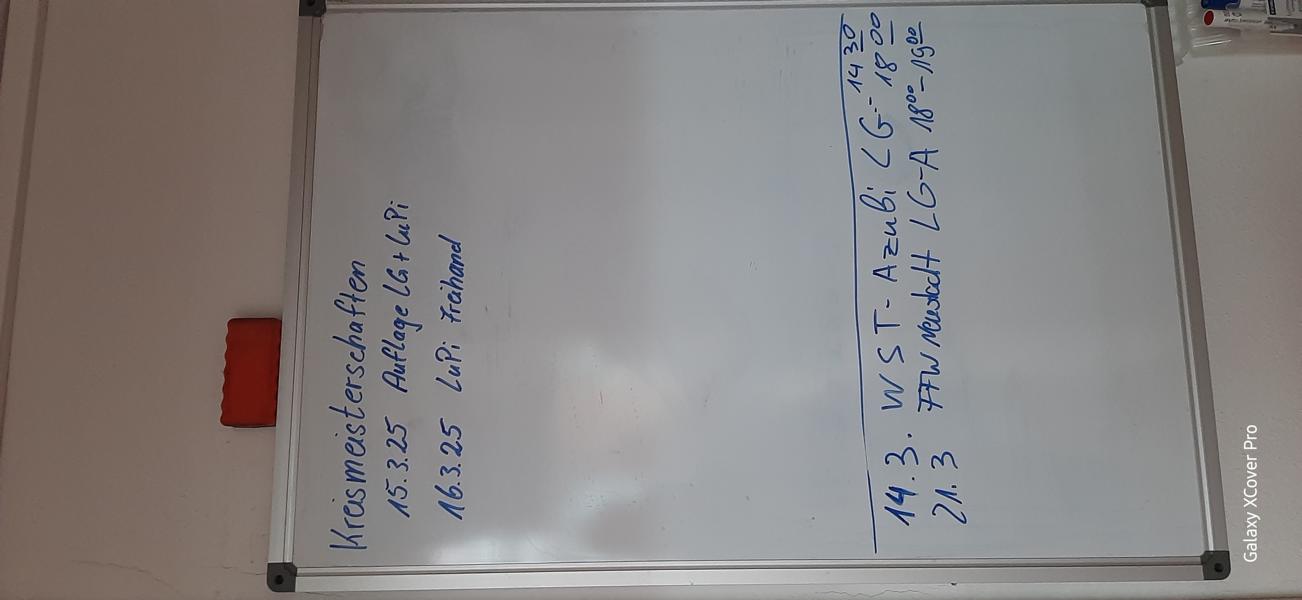 Kreismeisterschaften
15.3.25 Auflage LG + LuPi
16.3.25 LuPi Freihand
14.3. WST-Azubi LG - 14 30 - 18 00
21.3 FFW Neustadt LG-A 18 00 - 19 00
Galaxy XCover Pro